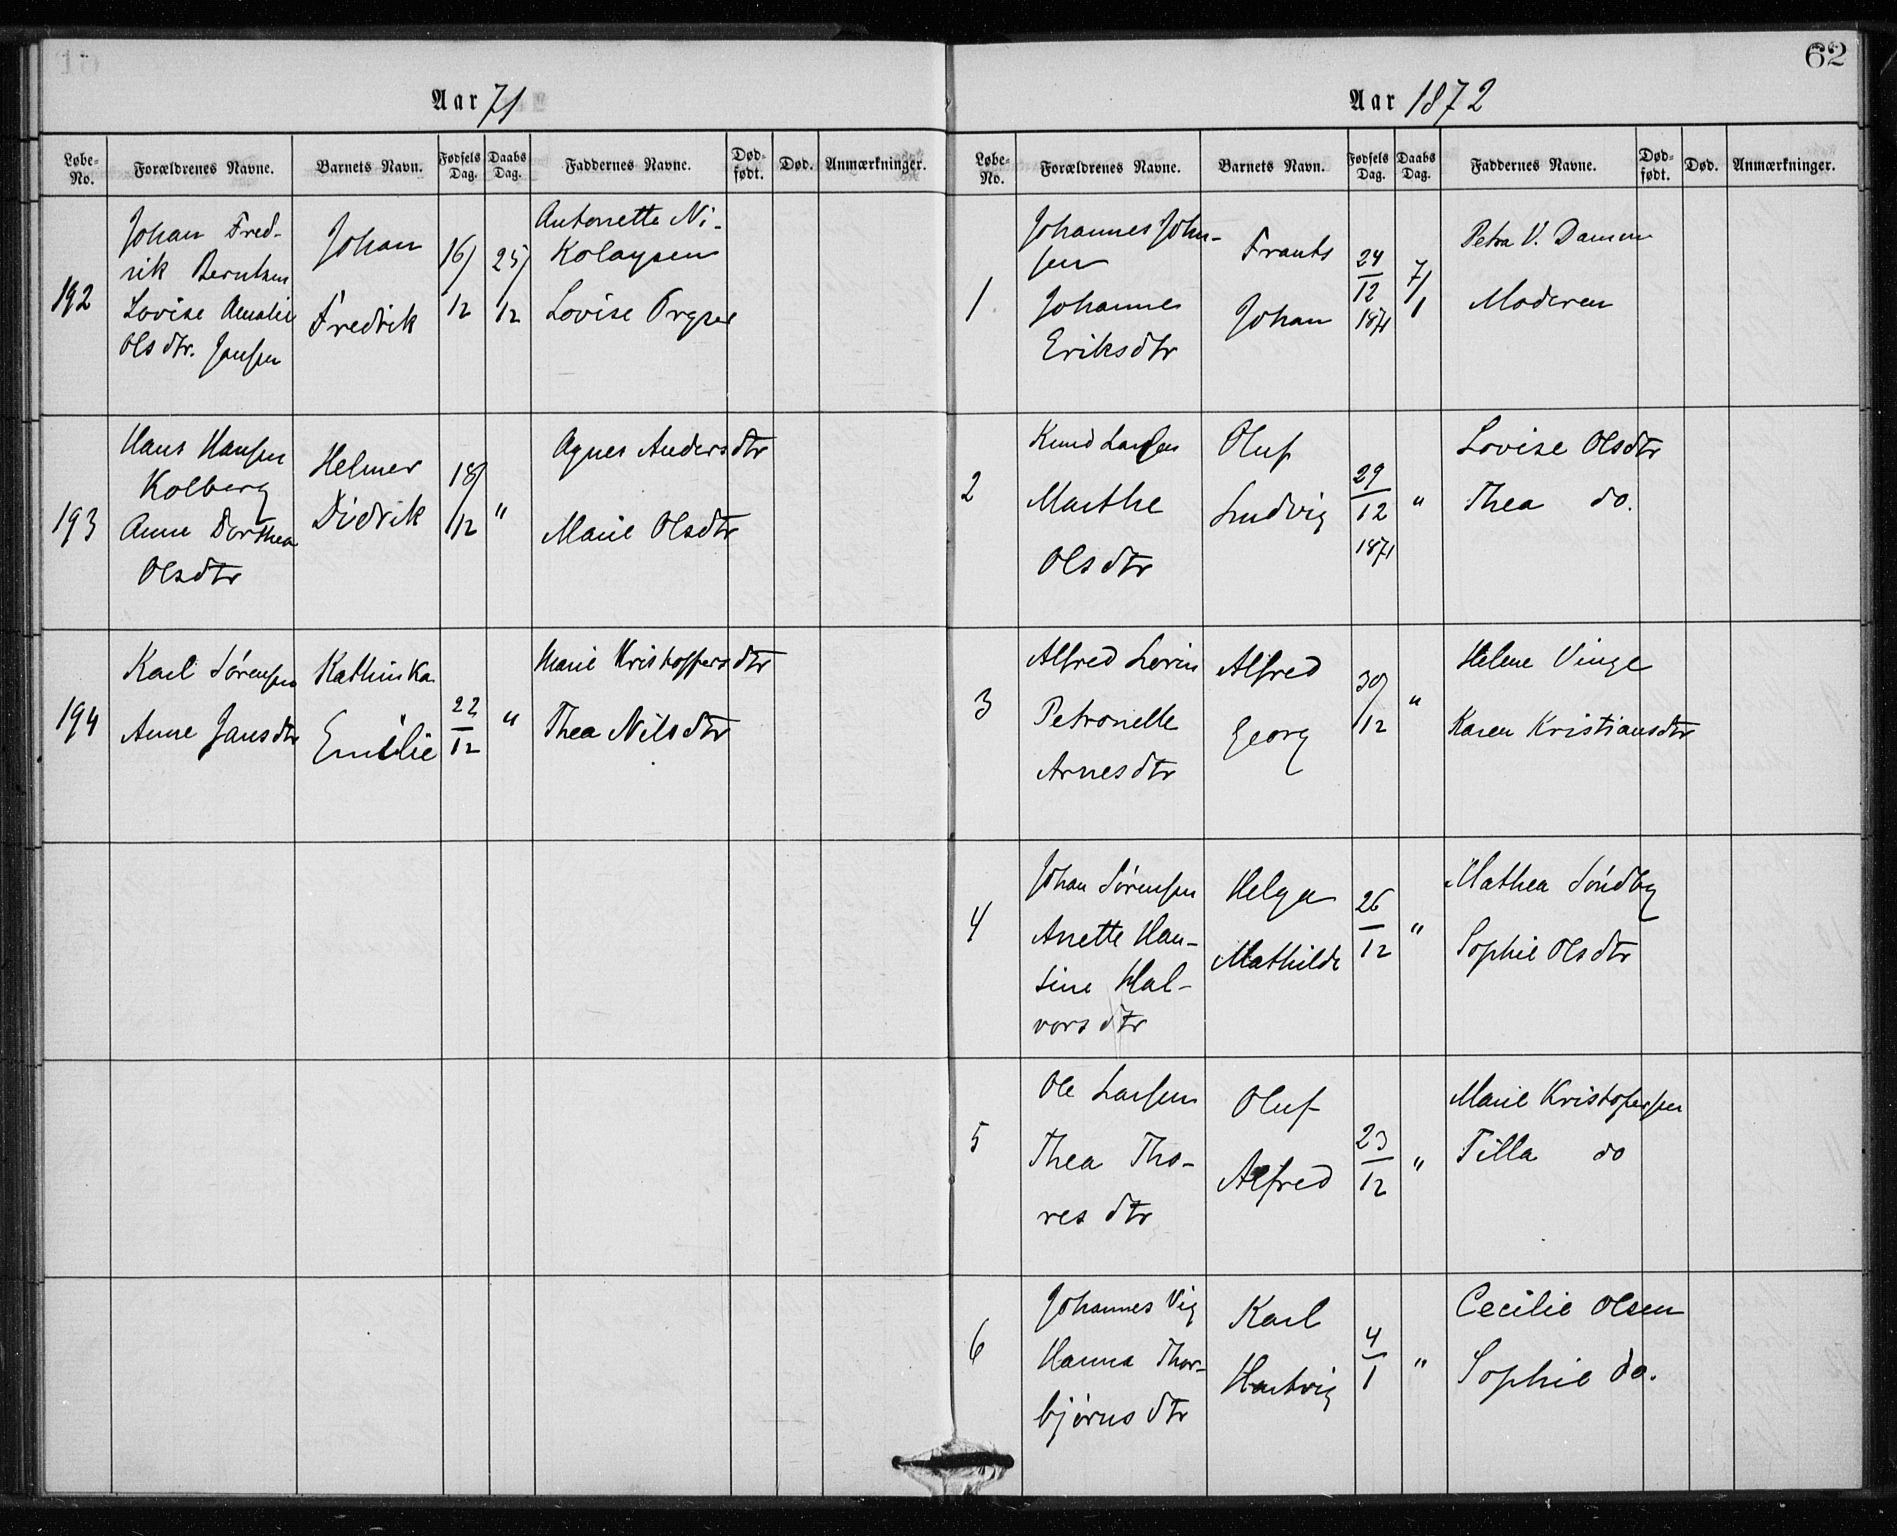 Aar 71
Løbe-No. Forældrenes Navne. Barnets Navn. Fødsels Dag. Daabs Dag. Faddernes Navne. Død-født. Død. Anmærkninger.
192
Johan Fred-
rik Berntsen
Lovise Amalie
Olsdtr. Jansen
Johan
Fredrik
16/12
25/12
Antonette Ni-
kolaysen
Lovise
193
Hans Hansen
Kolberg
Anne Dorthea
Olsdtr
Helmer
Didrik
18/12
"
Agnes Andersdtr
Marie Olsdtr
194
Karl Sørensen
Anne Jansdtr
Kathinka
Emilie
22/12
"
Marie Kristoffersdtr
Thea Nilsdtr
62
Aar 1872
Løbe-No. Forældrenes Navne. Barnets Navn. Fødsels Dag. Daabs Dag. Faddernes Navne. Død-født. Død. Anmærkninger.
1
Johannes John-
sen
Johanne
Eriksdtr
Frants
Johan
24/12
1871
7/1
Petra V.
Moderen
2
Knud Larsen
Marthe
Olsdtr
Oluf
Ludvig
29/12
1871
"
Lovise Olsdtr
Thea do.
3
Alfred
Petronelle
Arnesdtr
Alfred
Georg
30/12
"
Helene Vinge
Karen Kristiansdtr
4
Johan Sørensen
Anette Han-
sine Hal-
vorsdtr
Helga
Mathilde
26/12
"
Mathea Sündby
Sophie Olsdtr
5
Ole Larsen
Thea Tho-
resdtr
Oluf
Alfred
23/12
"
Marie Kristofersen
Tilla do
6
Johannes Vig
Hanna Thor-
bjørnsdtr
Karl
Hartvig
4/1
"
Cecilie Olsen
Sophie do.